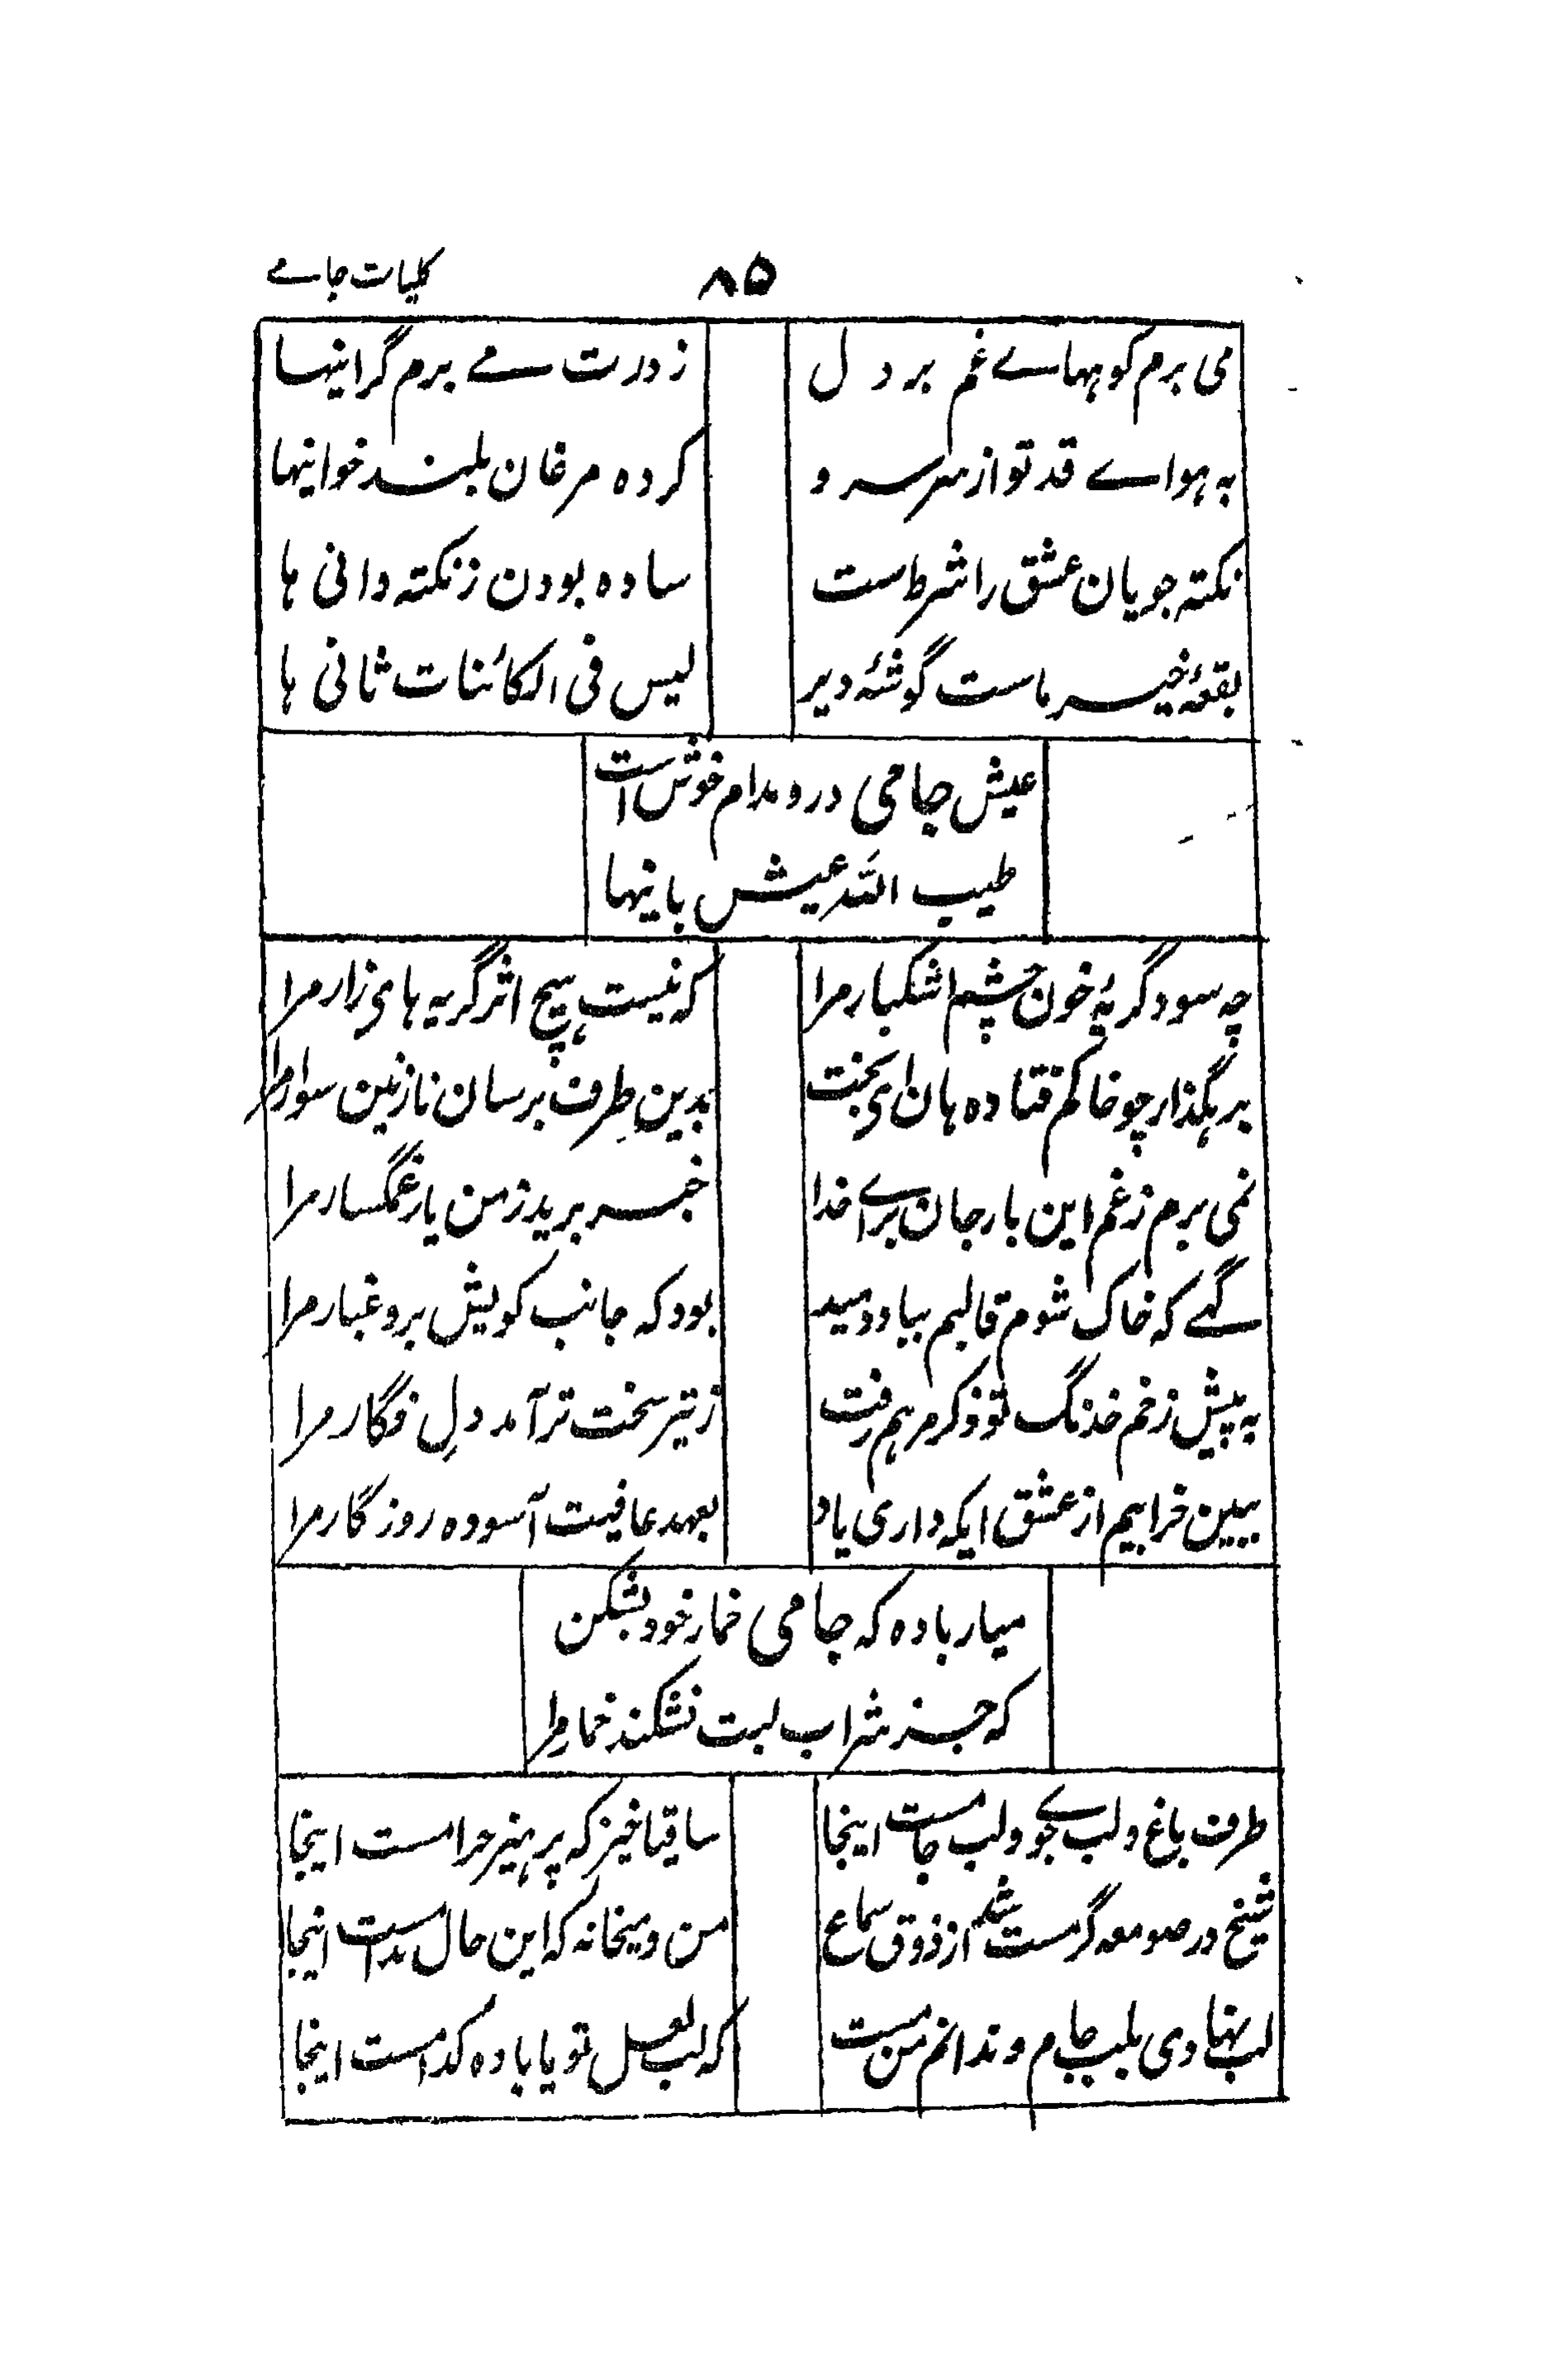 ۸۵ کلیات جامے
می برم کوہہاے غم بر دل زدرت مے برم گرانیہا
بہ ہواے قد تو از سر سرو کردہ مرغان بلند خوانیہا
نکتہ جویان عشق را شرط ست سادہ بودن ز نکتہ دانی ہا
بقعۂ خیر ماست گوشۂ دیر لیس فی الکائنات ثانی ہا
عیش جامی درو مدام خوش است
طیب اللہ عیش بانیہا
چہ سود گریۂ خون چشم اشکبار مرا کہ نیست ہیچ اثر گریہ ہای زار مرا
برہگذار چو خاکم فتادہ ہان ای بخت بدین طرف برسان نازنین سوار مرا
نمی برم ز غم این بار جان براے خدا خبر برید ز من یار غمگسار مرا
گہے کہ خاک شوم قالبم بباد دمید بود کہ جانب کویش برو غبار مرا
بہ پیش زخم خدنگ تو ذکر مرہم رفت ز تیر سخت تر آمد دلِ فگار مرا
ببین خرابیم از عشق ایکہ داری یاد بعہد عافیت آسودہ روزگار مرا
میار بادہ کہ جامی خمار خود بشکن
کہ جز شراب لبت نشکند خمار مرا
طرف باغ و لب جوے و لب جامست اینجا ساقیا خیز کہ پرہیز حرامست اینجا
شیخ در صومعہ گر مست شد از ذوق سماع من و میخانہ کہ این حال مدامست اینجا
لب نہادی بلب جام و ندانم من مست کہ لب لعل تو یا بادہ کدامست اینجا